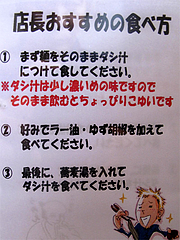 店長おすすめの食べ方
① まず麺をそのままダシ汁
につけて食してください。
※ダシ汁は少し濃いめの味ですので
そのまま飲むとちょっぴりこゆいです
② 好みでラー油・ゆず胡椒を加えて
食べてください。
③ 最後に、蕎麦湯を入れて
ダシ汁を食べてください。